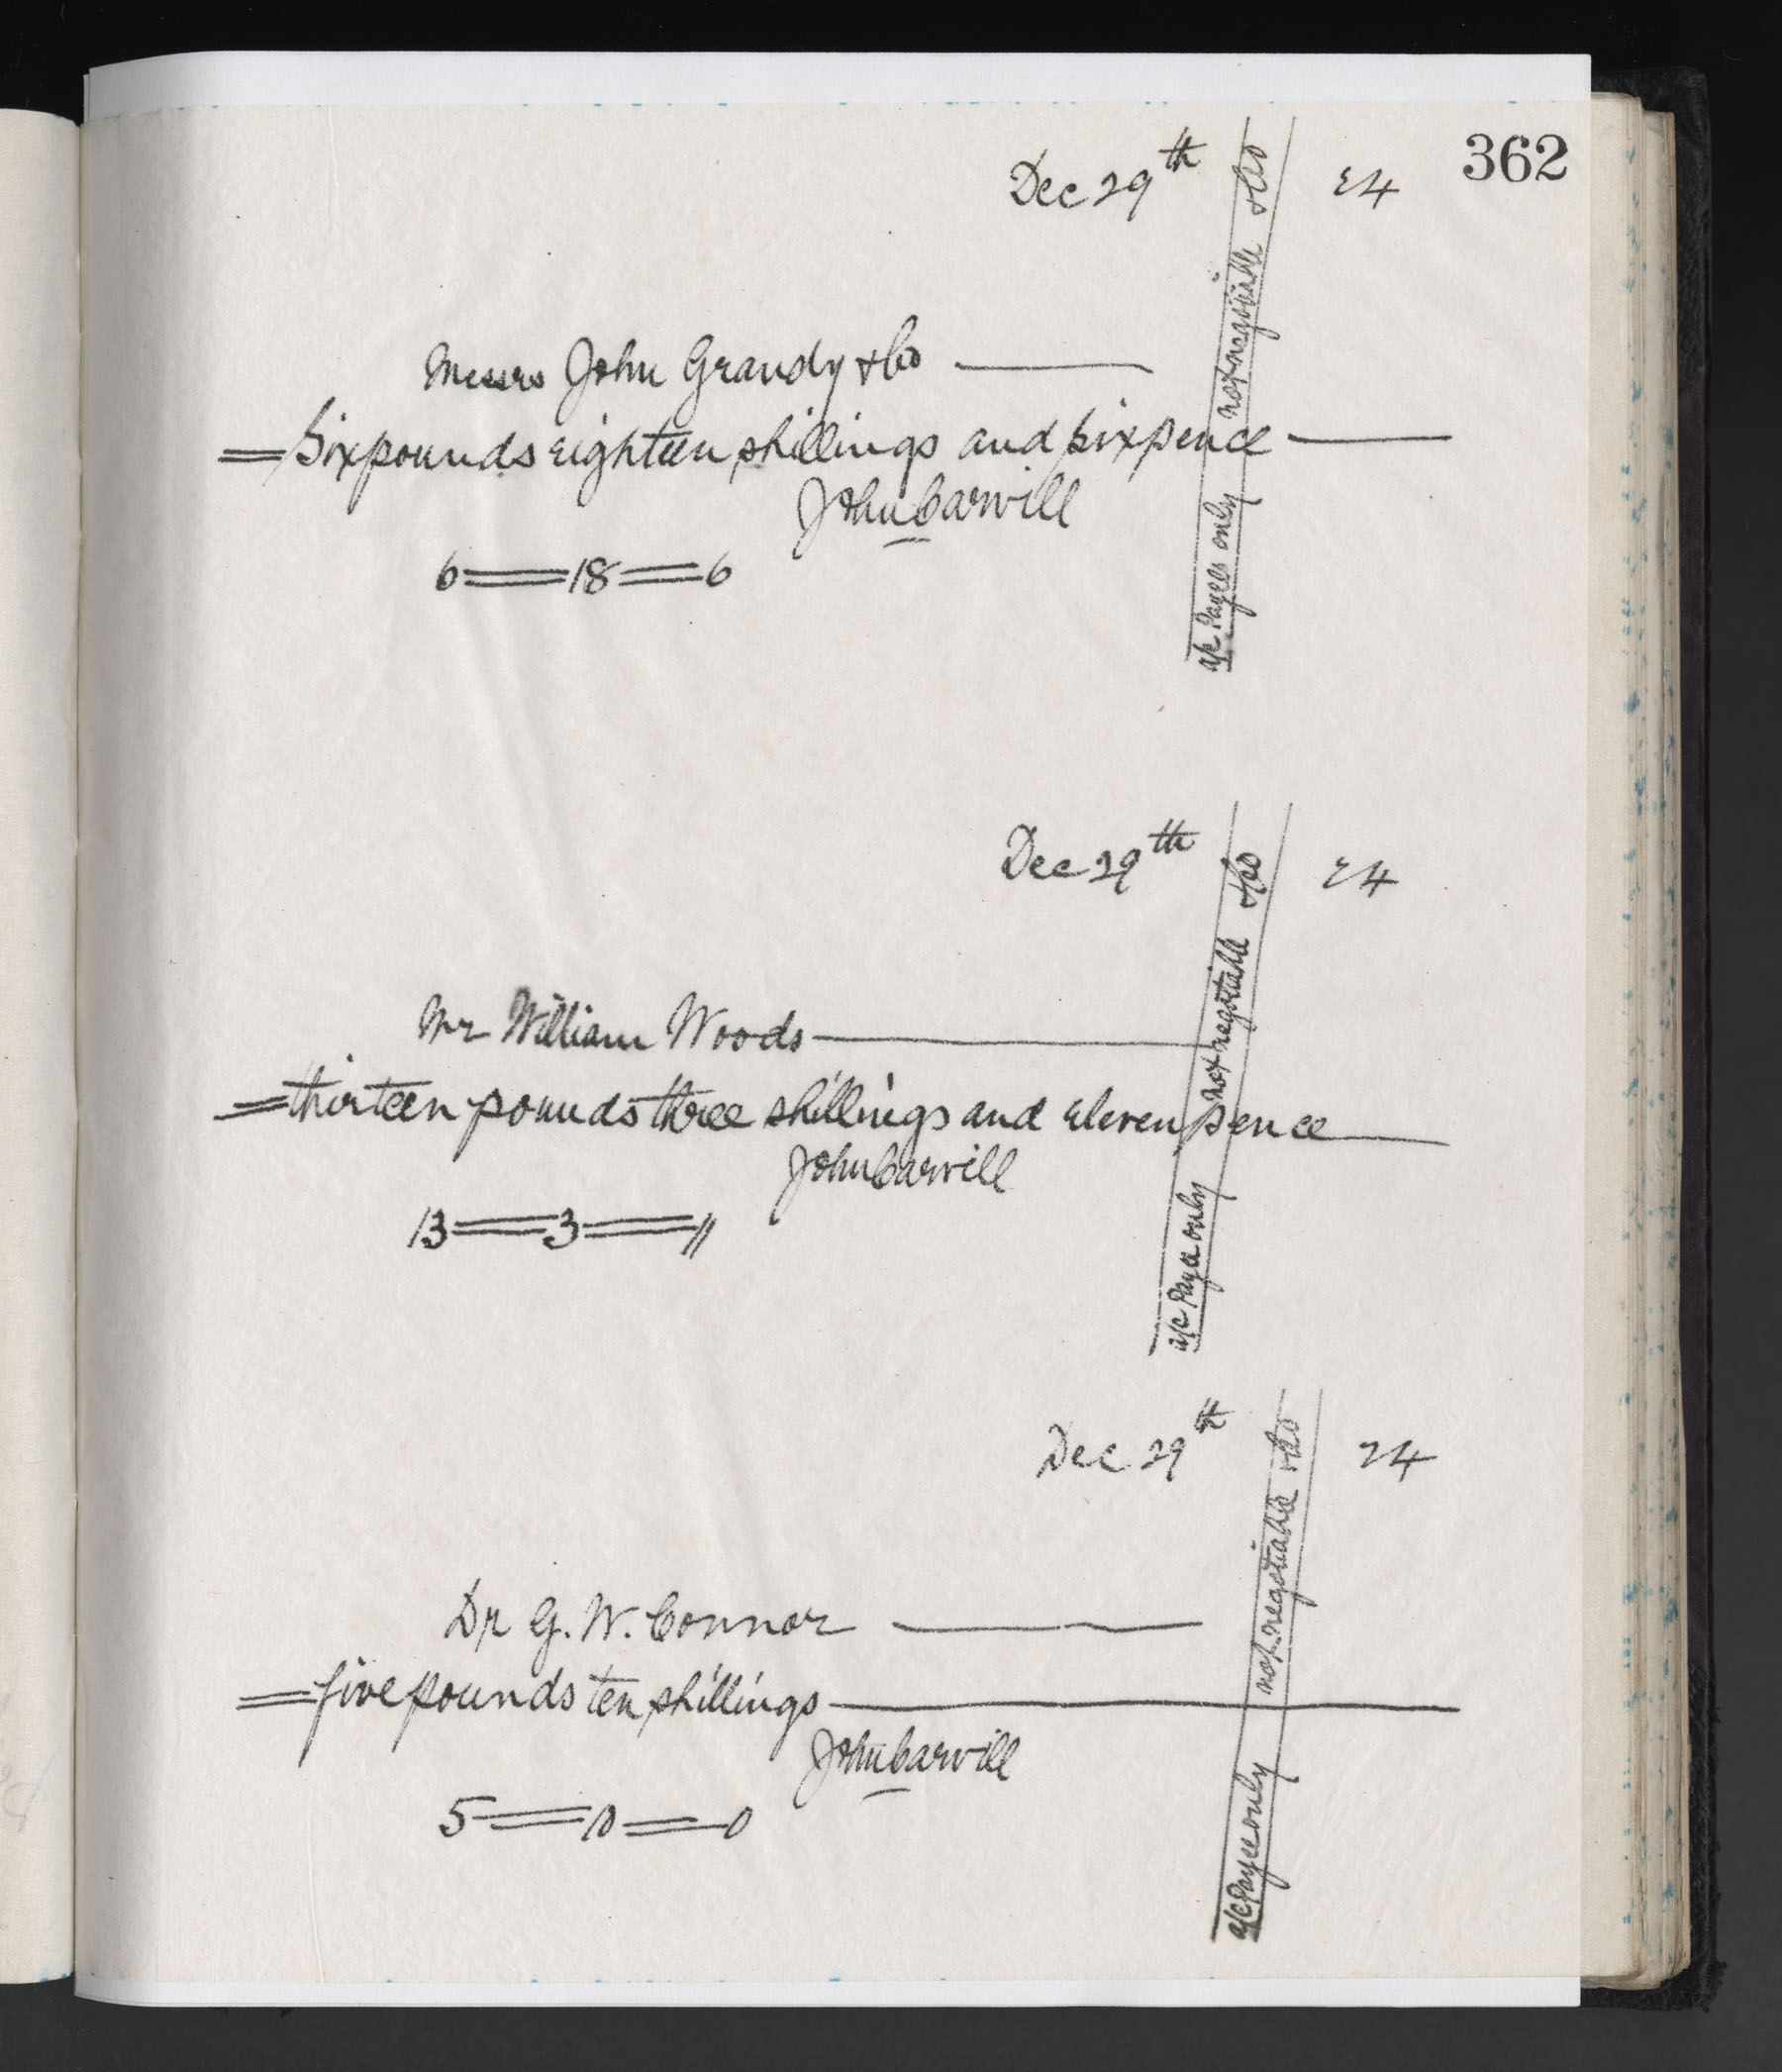 362
Dec 29th 24
Messrs John Grandy & Co
Six pounds eighteen shillings and sixpence
John Carvill
6 = 18 = 6
a/c Payees only not negotiable & Co
Dec 29th 24
Mr William Woods
thirteen pounds three shillings and eleven pence
John Carvill
13 = 3 = 11
a/c Payee only not negotiable & Co
Dec 29th 24
Dr G. W. Connor
five pounds ten shillings
John Carvill
5 = 10 = 0
a/c Payee only not negotiable & Co